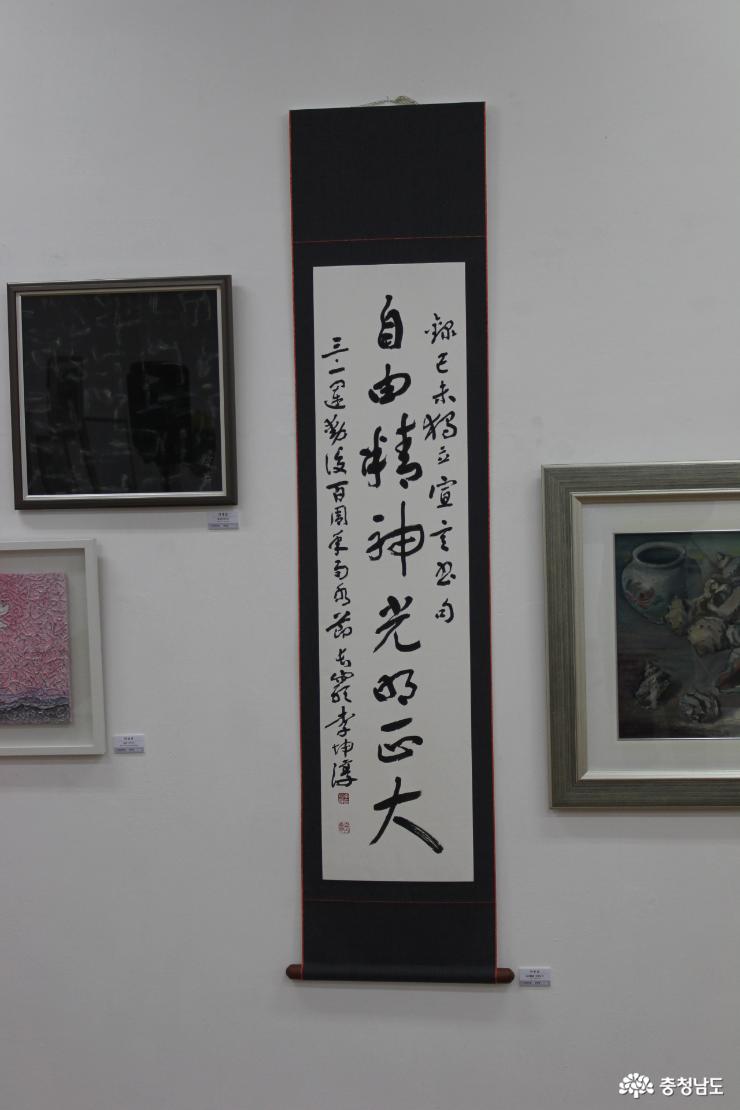 錄己未獨立宣言書句
自由精神光明正大
三·一運動後百周年雨水節 李坤淳
충청남도